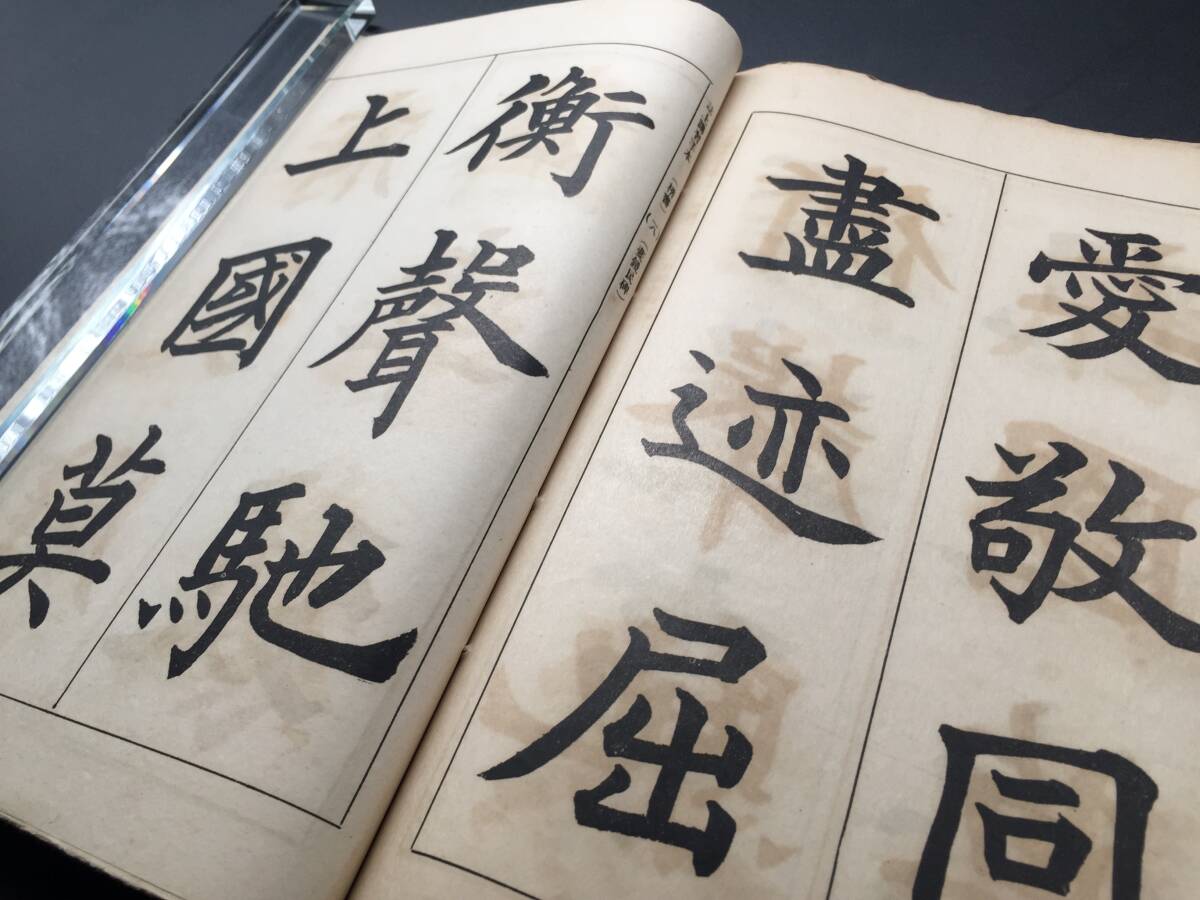 愛敬同
盡迹屈
衡聲馳
上國莫